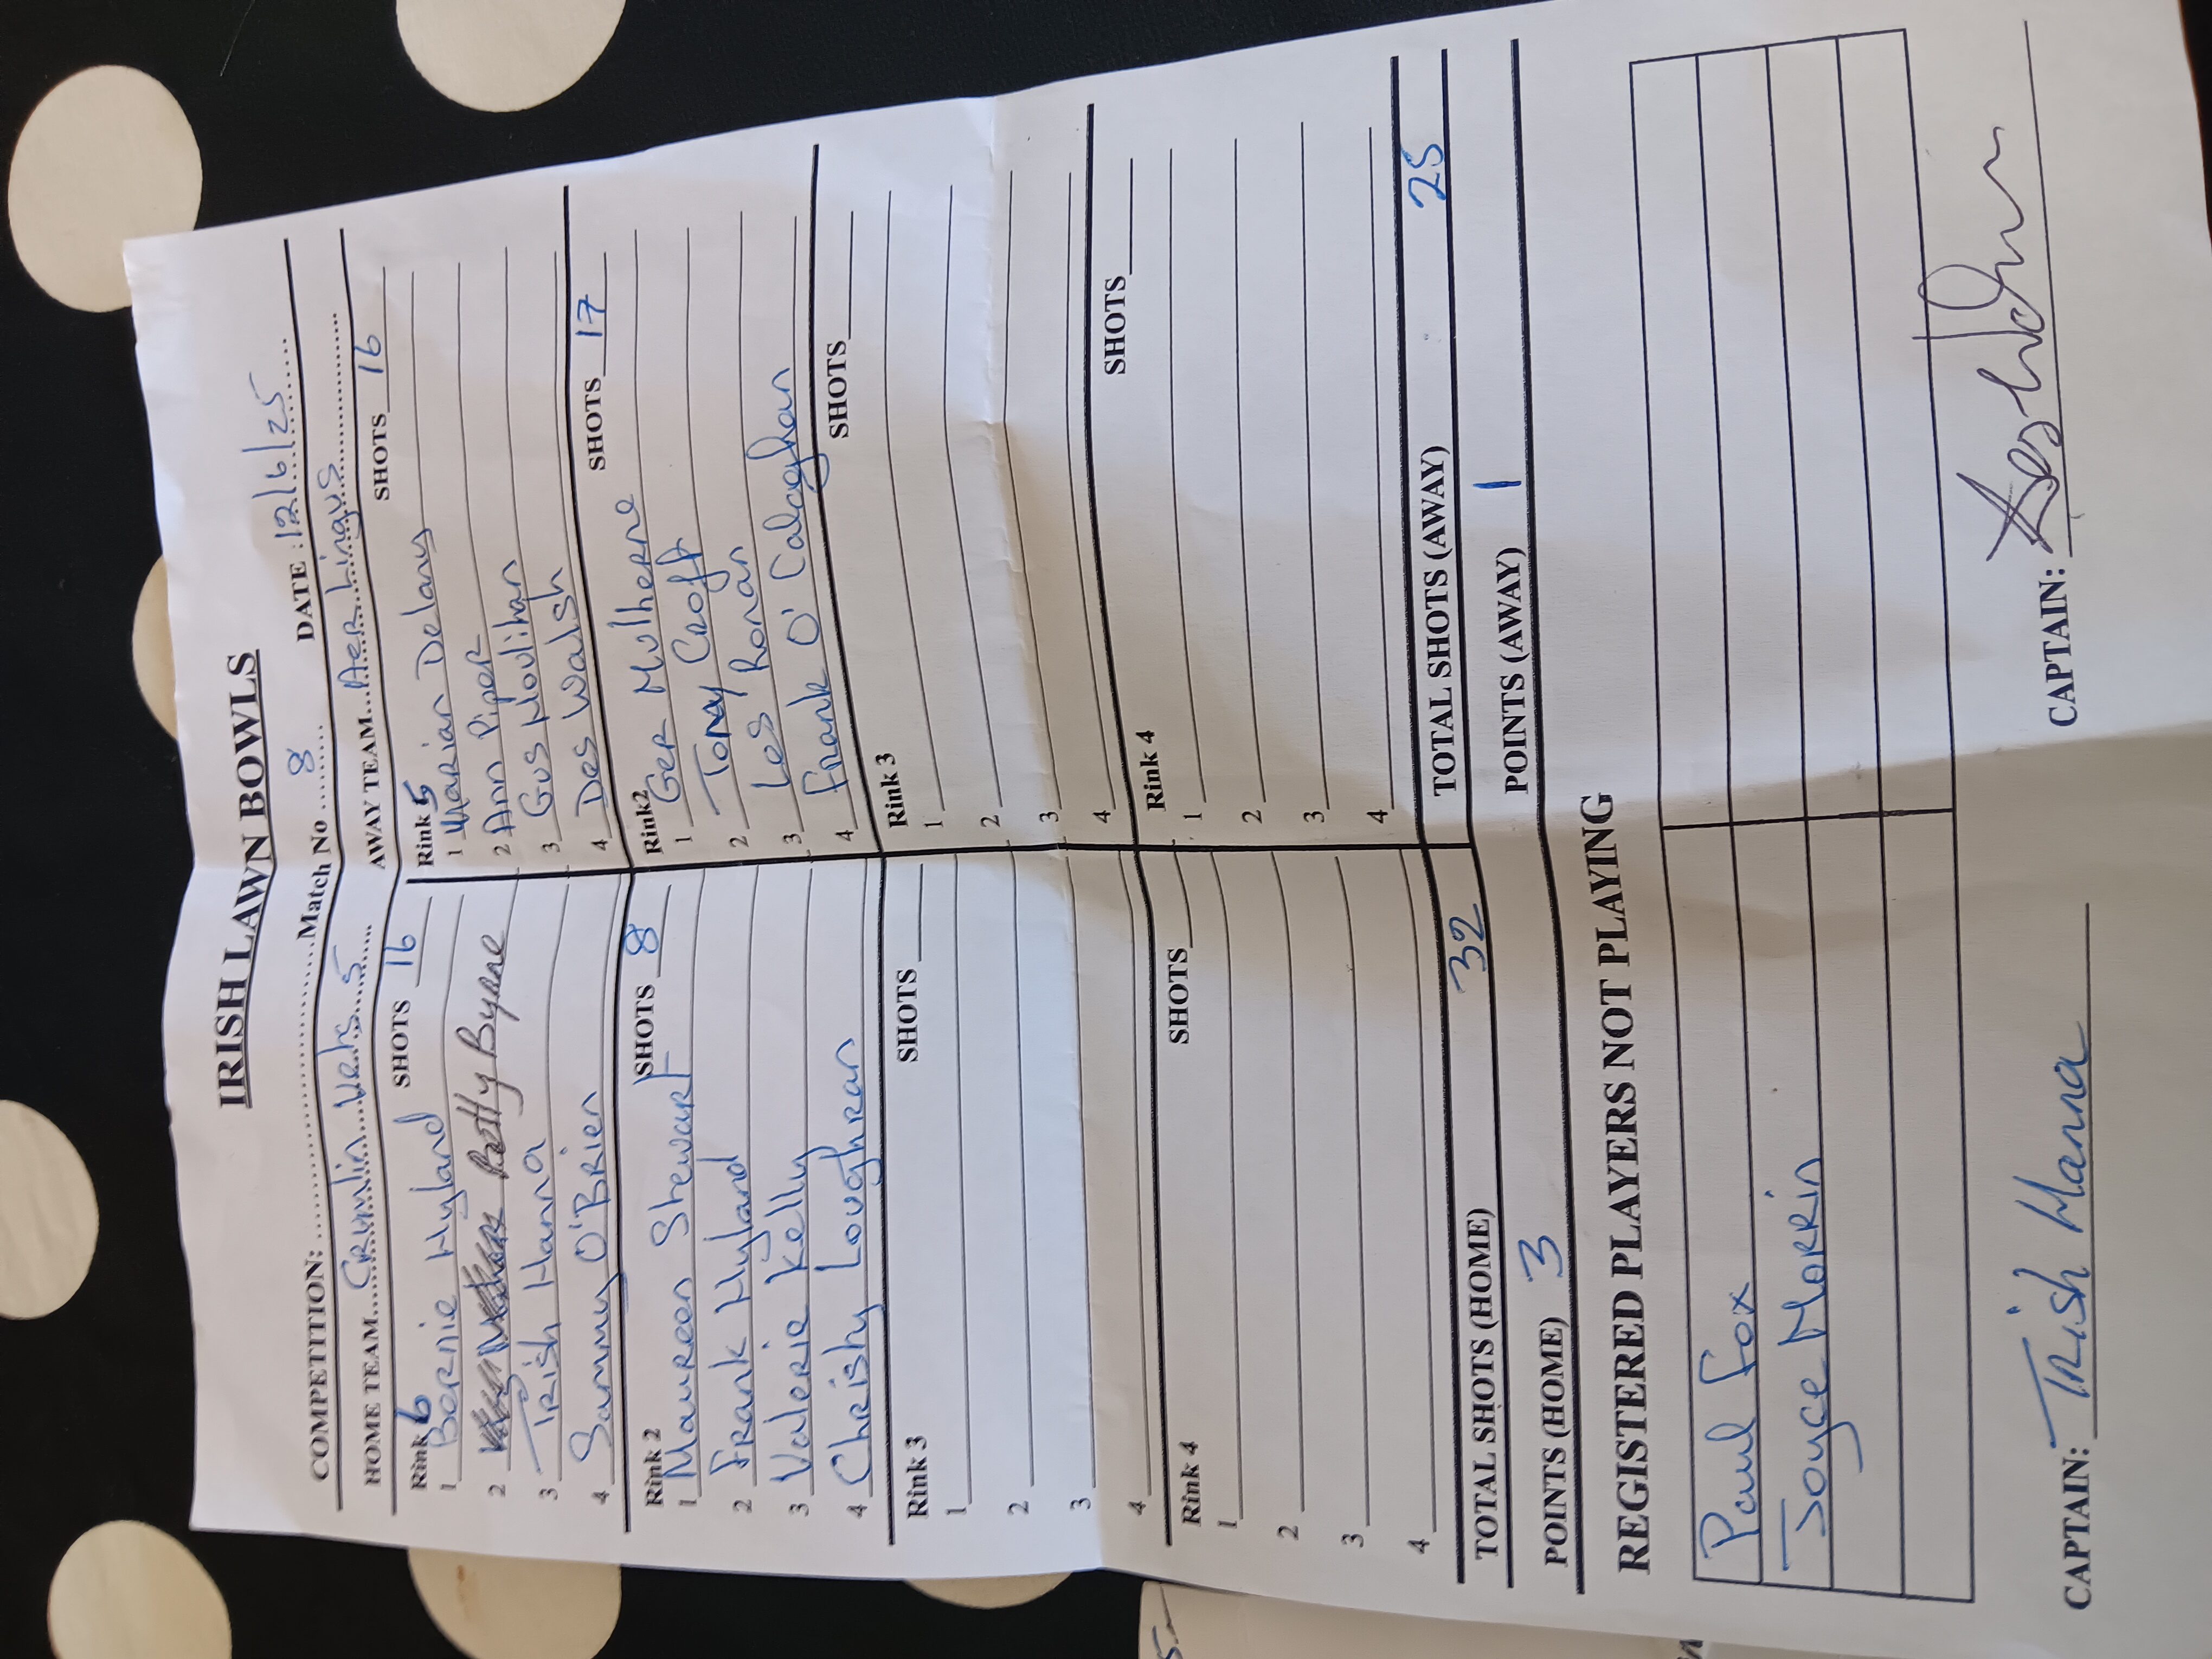 IRISH LAWN BOWLS
COMPETITION: ........................Match No ...8... DATE :12/6/25
HOME TEAM...Crumlin Vets 5... AWAY TEAM...Aer Lingus...
SHOTS 16 SHOTS 16
Rink 6 Rink 5
1 Bernie Hyland 1 Marian Delany
2 Patty Byrne 2 Ann Piper
3 Trish Hanna 3 Gus Houlihan
4 Sammy O'Brien 4 Des Walsh
Rink 2 SHOTS 8 Rink2 SHOTS 17
1 Maureen Stewart 1 Ger Mulherne
2 Frank Hyland 2 Tony Croft
3 Valerie Kelly 3 Les Ronan
4 Christy Loughran 4 Frank O' Calaghan
Rink 3 SHOTS Rink 3 SHOTS
1 1
2 2
3 3
4 4
Rink 4 SHOTS Rink 4 SHOTS
1 1
2 2
3 3
4 4
TOTAL SHOTS (HOME) 32 TOTAL SHOTS (AWAY) 25
POINTS (HOME) 3 POINTS (AWAY) 1
REGISTERED PLAYERS NOT PLAYING
Paul Fox
Joyce Morrin
CAPTAIN: Trish Hanna CAPTAIN: